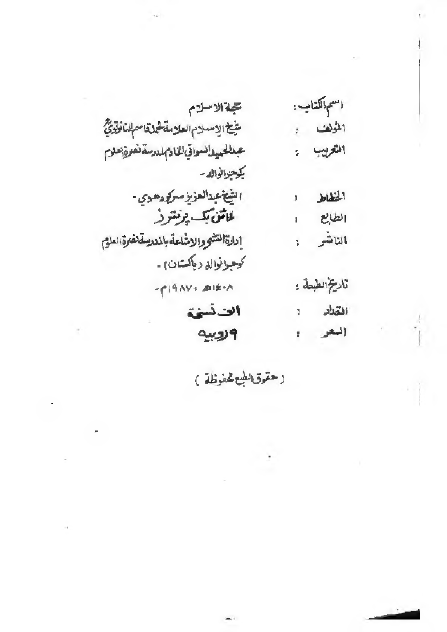 اسم الكتاب : حجة الاسلام
المؤلف : شيخ الإسلام العلامة محمد قاسم النانوتويؒ
التعريب : عبد الحميد السواتي الخادم لمدرسة نصرة العلوم
بكوجرانواله -
الخطاط : الشيخ عبد العزيز سركودهوي -
الطابع : پرنٹرز
الناشر : إدارة النشر والاشاعة بالمدرسة نصرة العلوم
كوجرانواله (باكستان) -
تاريخ الطبعة : ١٤٠٨ھ ، ١٩٨٧م -
التعداد : الف نسخة
السعر : ٩ روبيه
( حقوق الطبع محفوظة )